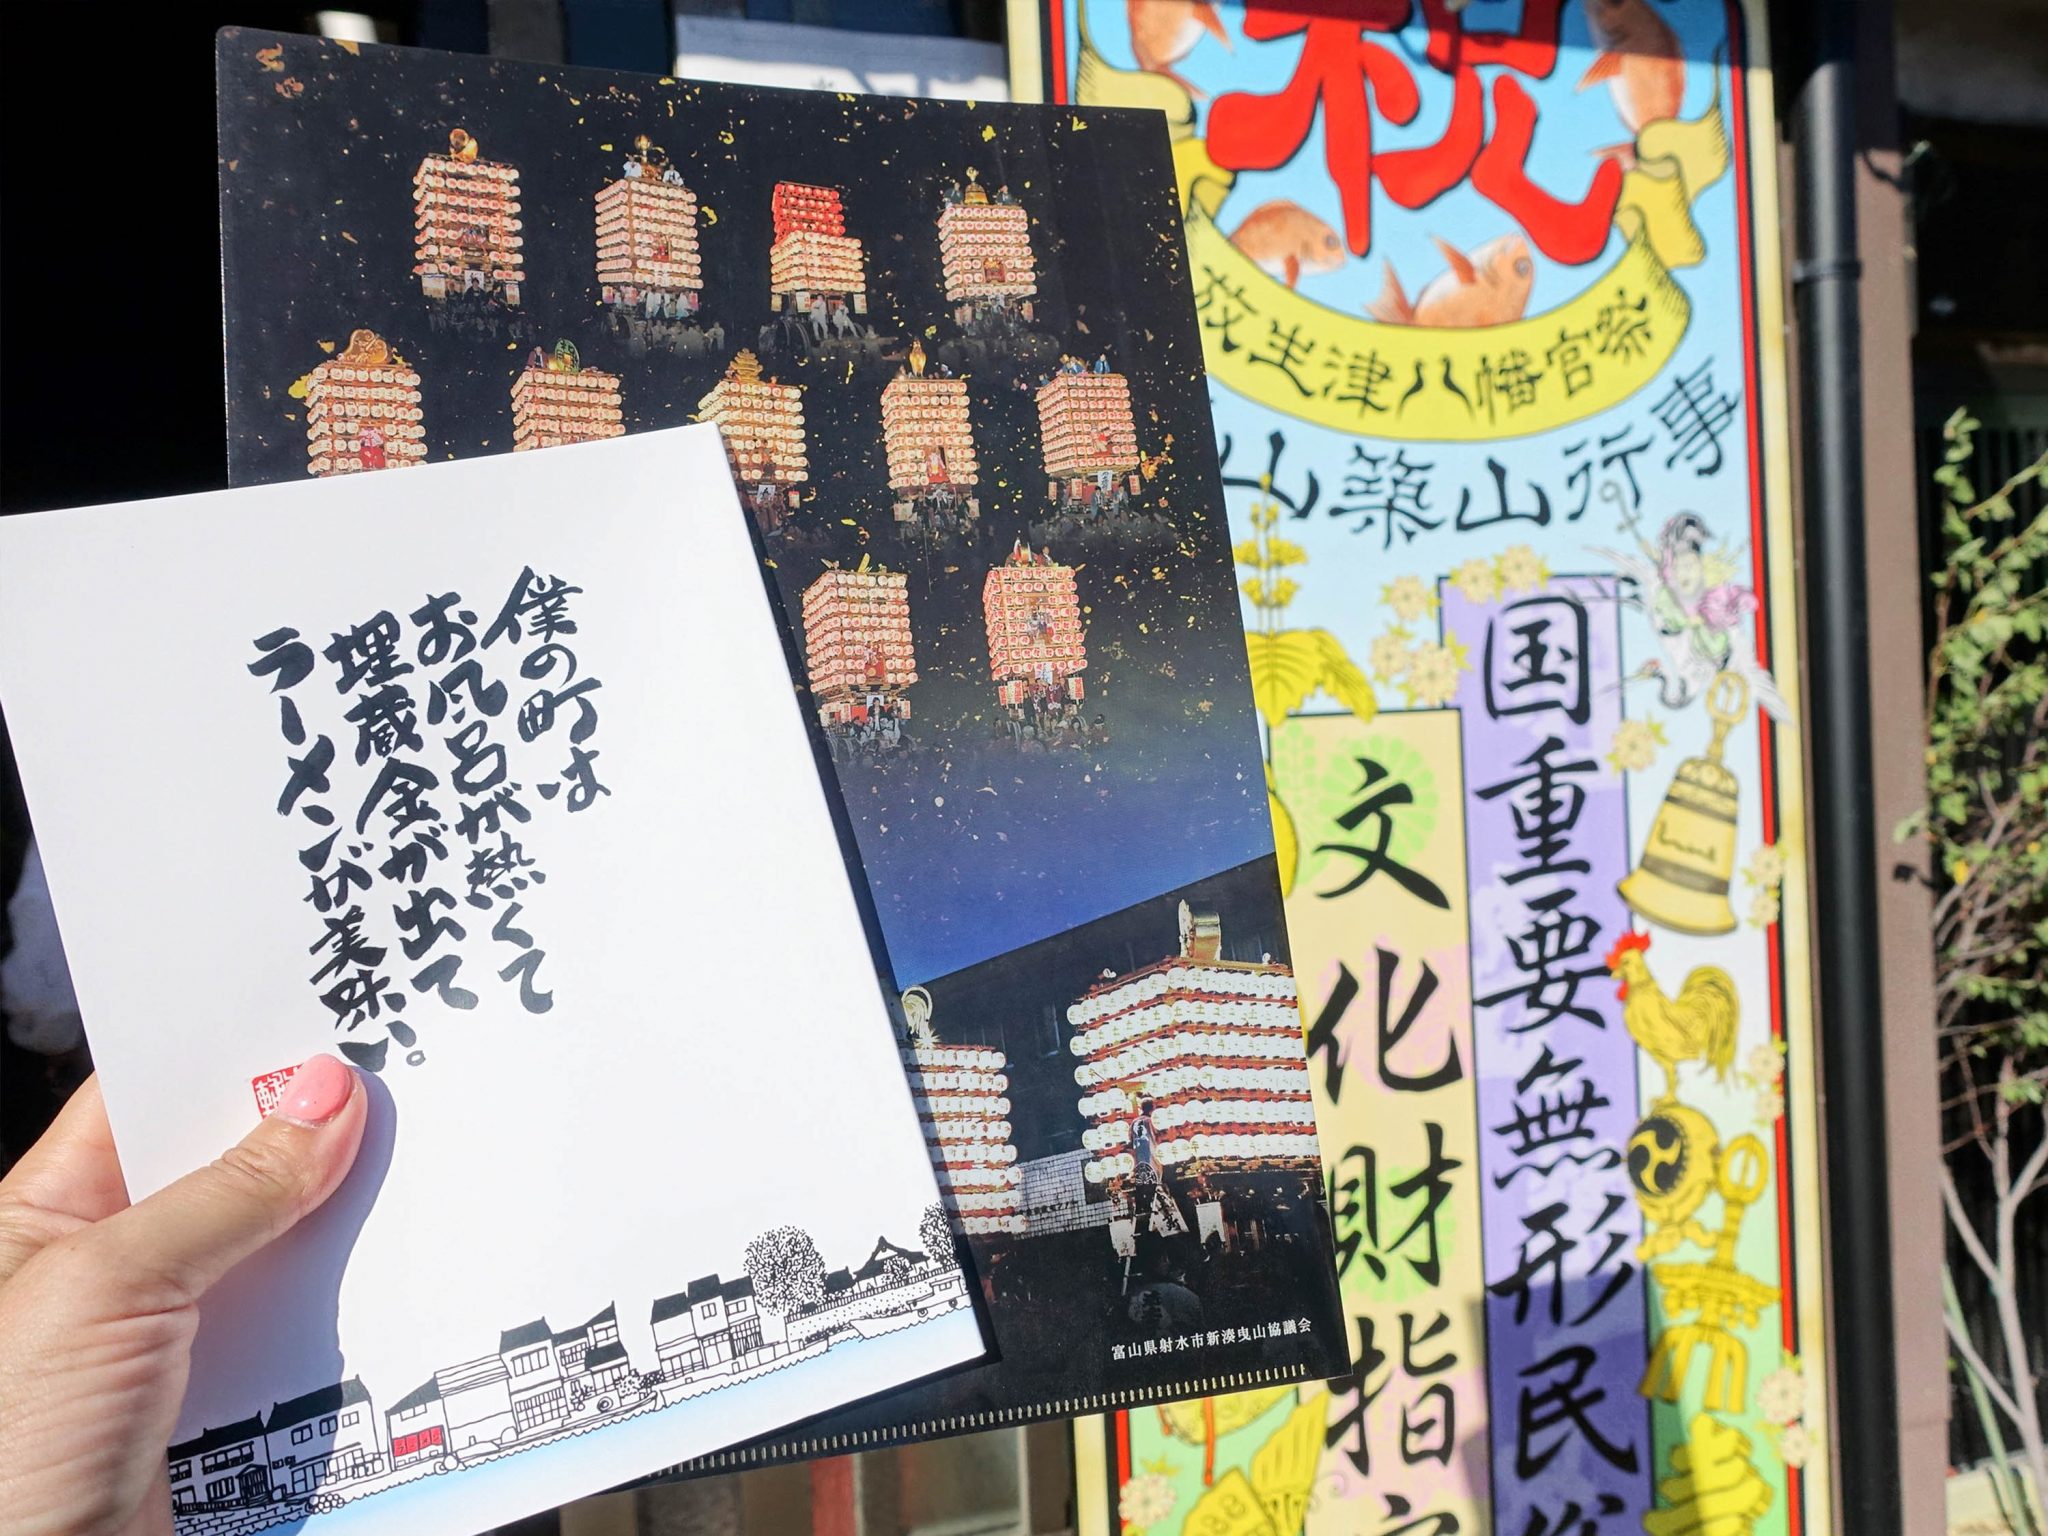 僕の町は
お風呂が熱くて
埋蔵金が出て
ラーメンが美味い。
富山県射水市新湊曳山協議会
祝
放生津八幡宮祭
山築山行事
国重要無形民
文化財指